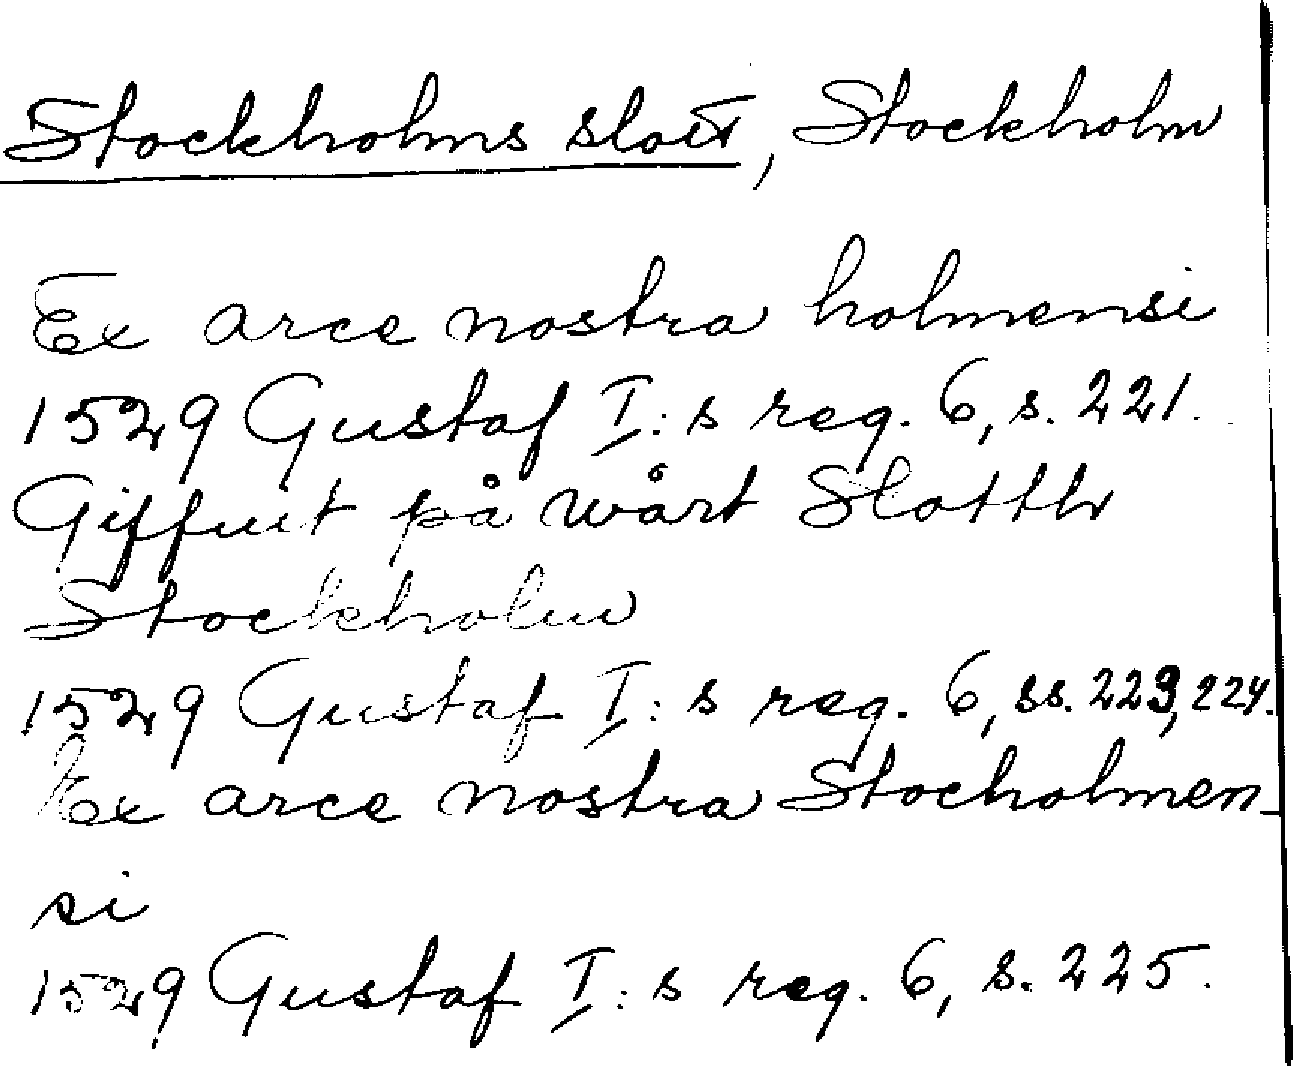 Stockholms slott, Stockholm
Ex arce nostra holmensi
1529 Gustaf I:s reg. 6, s. 221.
Giffuit på wårt Slotth
Stockholm
1529 Gustaf I:s reg. 6, ss. 223, 224.
Ex arce nostra Stocholmen-
si
1529 Gustaf I:s reg. 6, s. 225.